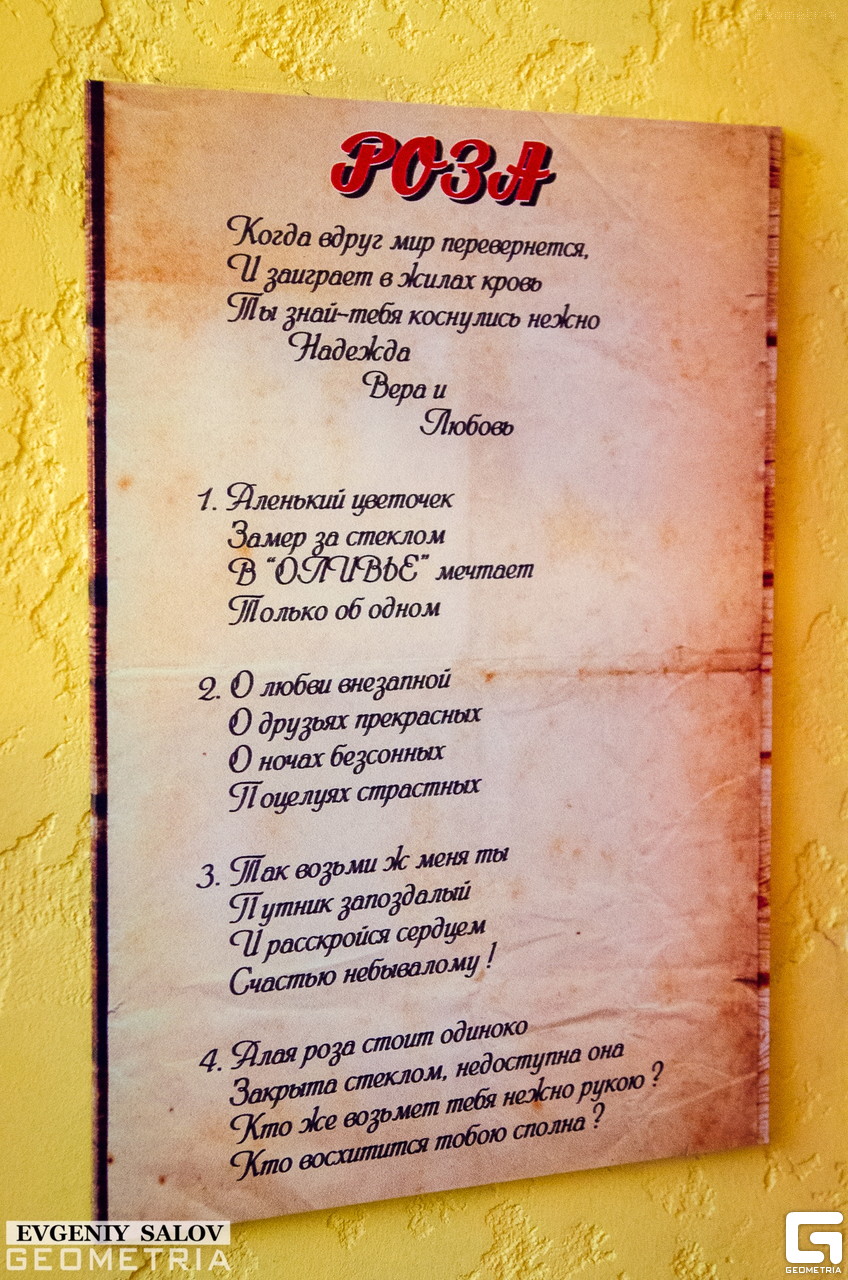 РОЗА
Когда вдруг мир перевернется,
И заиграет в жилах кровь
Ты знай-тебя коснулись нежно
Надежда
Вера и
Любовь
1. Аленький цветочек
Замер за стеклом
В "ОЛИВЬЕ" мечтает
Только об одном
2. О любви внезапной
О друзьях прекрасных
О ночах безсонных
Поцелуях страстных
3. Так возьми ж меня ты
Путник запоздалый
И расскройся сердцем
Счастью небывалому !
4. Алая роза стоит одиноко
Закрыта стеклом, недоступна она
Кто же возьмет тебя нежно рукою ?
Кто восхитится тобою сполна ?
EVGENIY SALOV
GEOMETRIA
GEOMETRIA